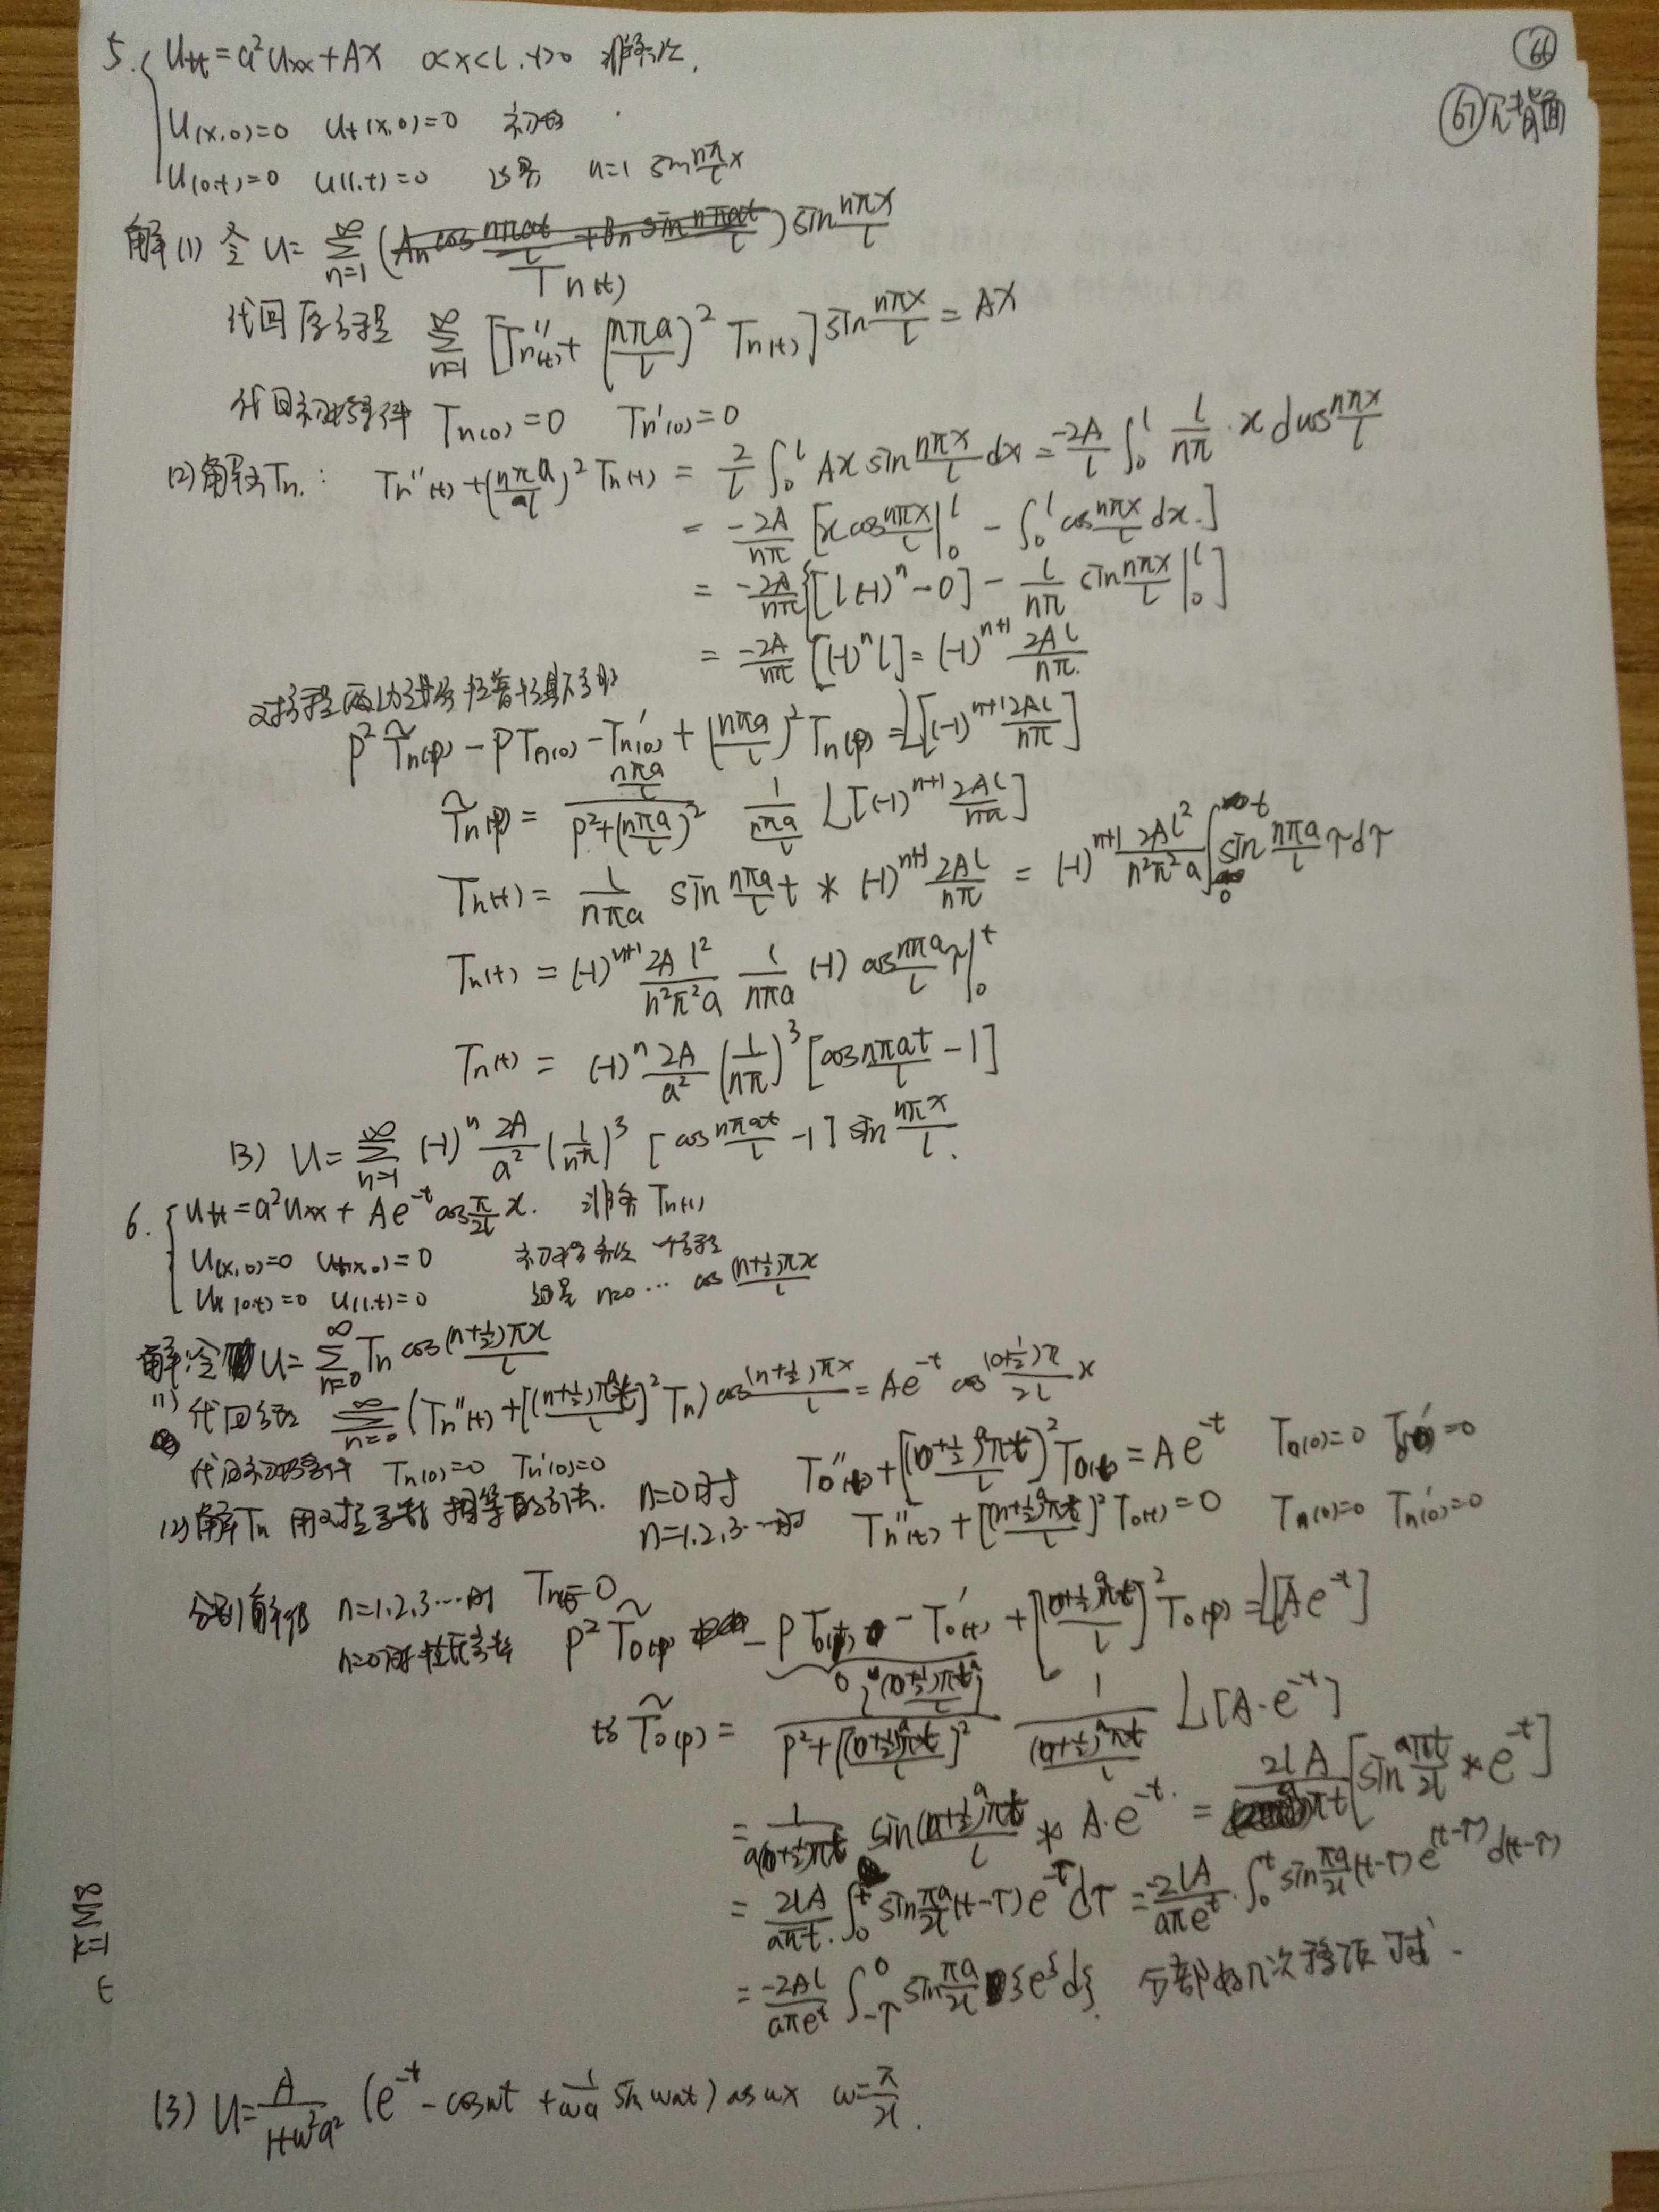 66
67 冗背面
5. { Utt = a²Uxx + Ax  0<x<l, t>0  非齐次,
U(x,0)=0  Ut(x,0)=0  初始
U(0,t)=0  U(l,t)=0  边界  n=1  sin nπ/l x
解 (1) 令 U = ∑_{n=1}^{∞} Tn(t) sin nπx/l
代回原方程 ∑_{n=1}^{∞} [Tn''(t) + (nπa/l)² Tn(t)] sin nπx/l = Ax
代回初始条件 Tn(0)=0  Tn'(0)=0
(2) 解Tn: Tn''(t) + (nπa/l)² Tn(t) = 2/l ∫₀^l Ax sin nπx/l dx = -2A/l ∫₀^l l/nπ · x dcos nπx/l
= -2A/nπ [x cos nπx/l |₀^l - ∫₀^l cos nπx/l dx.]
= -2A/nπ {[l(-1)ⁿ - 0] - l/nπ sin nπx/l |₀^l]
= -2A/nπ [(-1)ⁿ l] = (-1)ⁿ⁺¹ 2Al/nπ.
对方程两边进行拉普拉斯
p² T̃n(p) - pTn(0) - Tn'(0) + (nπa/l)² Tn(p) = L[(-1)ⁿ⁺¹ 2Al/nπ]
T̃n(p) = (nπa/l)/(p²+(nπa/l)²) 1/(nπa/l) L[(-1)ⁿ⁺¹ 2Al/nπ]
Tn(t) = l/nπa sin nπa/l t * (-1)ⁿ⁺¹ 2Al/nπ = (-1)ⁿ⁺¹ 2Al²/n²π²a ∫₀^t sin nπa/l τdτ
Tn(t) = (-1)ⁿ⁺¹ 2Al²/n²π²a l/nπa (-1) cos nπa/l τ |₀^t
Tn(t) = (-1)ⁿ 2A/a² (l/nπ)³ [cos nπat/l - 1]
(3) U = ∑_{n=1}^{∞} (-1)ⁿ 2A/a² (l/nπ)³ [cos nπat/l - 1] sin nπx/l.
6. { Utt = a²Uxx + Ae⁻ᵗ cos π/2l x.  非齐 Tn(t)
U(x,0)=0  Ut(x,0)=0  初始齐次
Ux(0,t)=0  U(l,t)=0  边界 n=0 ⋯ cos (n+½)πx/l
解: 令 U = ∑_{n=0}^{∞} Tn cos (n+½)πx/l
(1) 代回方程 ∑_{n=0}^{∞} (Tn''(t) + [(n+½)πa/l]² Tn) cos (n+½)πx/l = Ae⁻ᵗ cos (0+½)π/2l x
代回初始条件 Tn(0)=0  Tn'(0)=0
(2) 解Tn 用对应系数相等的方法. n=0时 T0''(t) + [(0+½)aπ/l]² T0(t) = Ae⁻ᵗ  T0(0)=0  T0'(0)=0
n=1.2.3⋯时 Tn''(t) + [(n+½)aπ/l]² T0(t) = 0  Tn(0)=0  Tn'(0)=0
分别解得 n=1.2.3⋯时 Tn=0
n=0时 p² T̃0(p) - pT0(t) - T0'(t) + [(0+½)aπ/l]² T0(p) = L[Ae⁻ᵗ]
0
故 T̃0(p) = [(0+½)πa/l]/(p²+[(0+½)aπ/l]²) 1/((0+½)aπ/l) L[A·e⁻ᵗ]
= l/a(0+½)π sin (0+½)aπt/l * A·e⁻ᵗ = 2lA/aπt [sin aπt/2l * e⁻ᵗ]
= 2lA/aπt. ∫₀^t sin πa/2l (t-τ) e^{-τ} dτ = -2lA/aπeᵗ · ∫₀^t sin πa/2l (t-τ) e^{(t-τ)} d(t-τ)
= -2Al/aπeᵗ ∫_{-τ}^0 sin πa/2l ξ e^ξ dξ. 分部好几次移项
(3) U = A/(1+ω²a²) (e⁻ᵗ - cosωt + 1/ωa sin ωat) cos ωx  ω=π/2l.